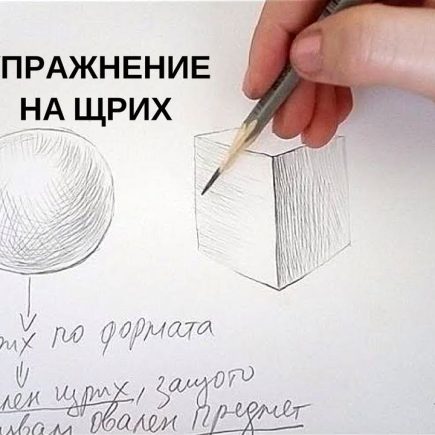 УПРАЖНЕНИЕ
НА ЩРИХ
рих по формата
лен щрих, защото
вам овален предмет